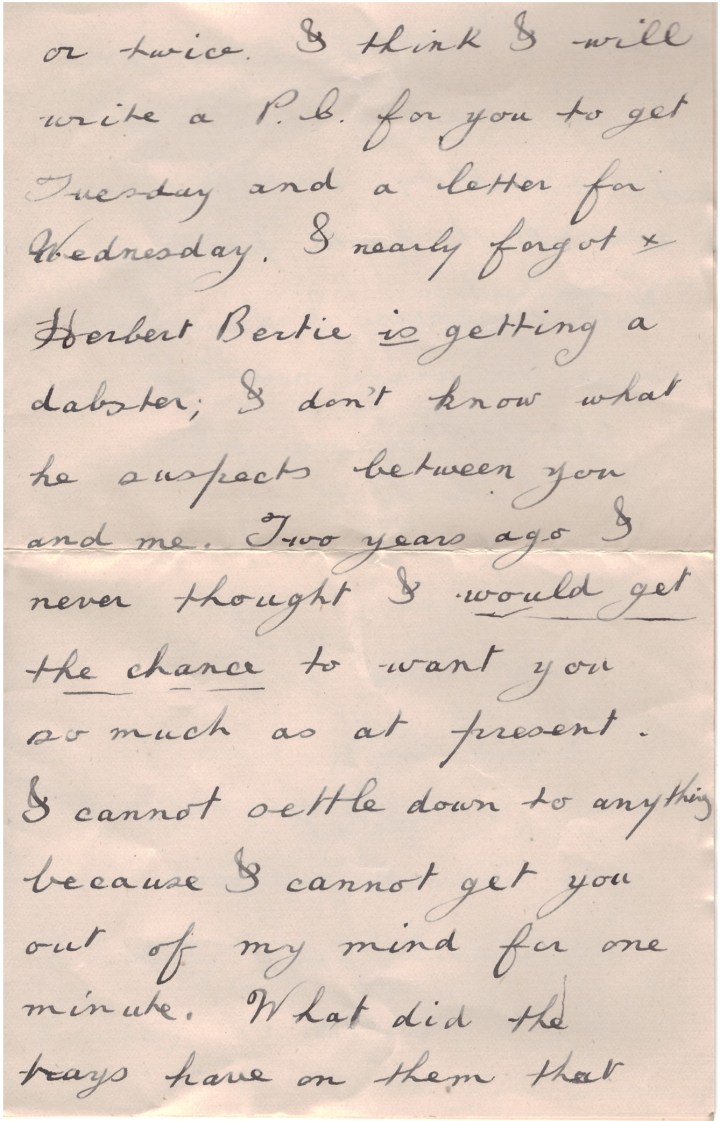 or twice. I think I will
write a P.C. for you to get
Tuesday and a letter for
Wednesday. I nearly forgot x
Herbert Bertie is getting a
dabster; I don't know what
he suspects between you
and me. Two years ago I
never thought I would get
the chance to want you
so much as at present.
I cannot settle down to anything
because I cannot get you
out of my mind for one
minute. What did the
trays have on them that